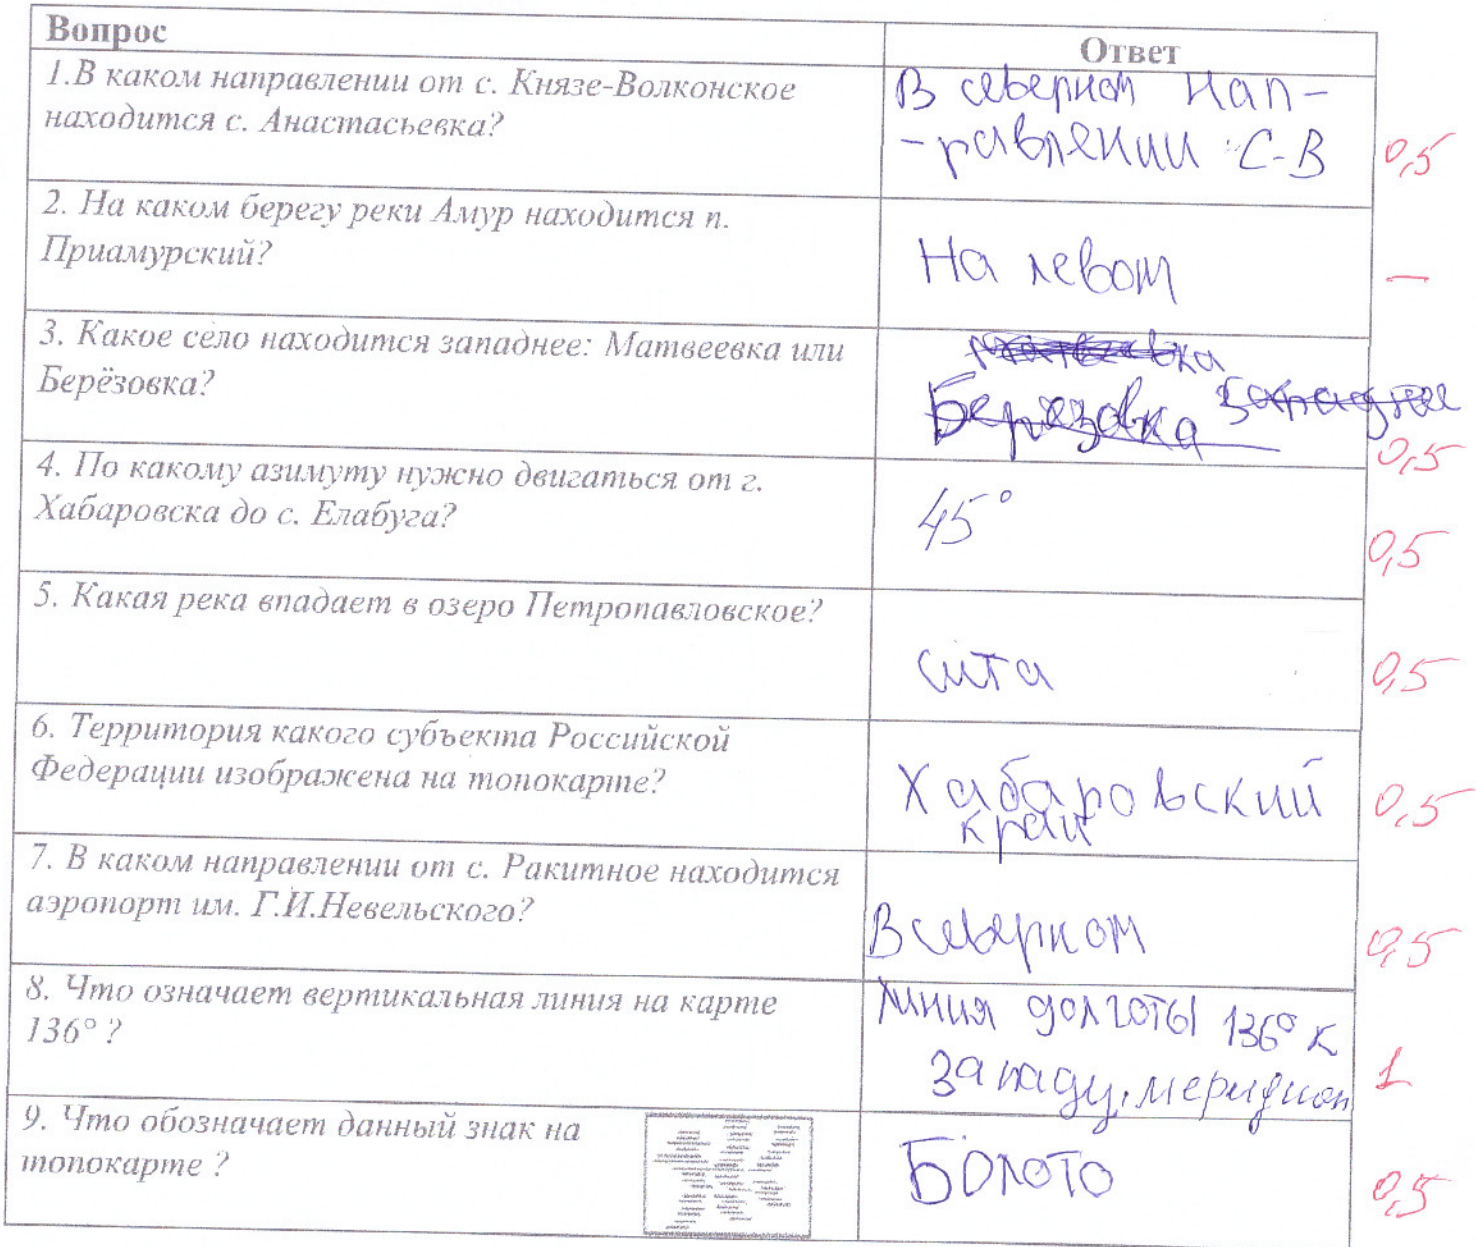 Вопрос
Ответ
1.В каком направлении от с. Князе-Волконское
находится с. Анастасьевка?
В северном нап-
-равлении С-В
0,5
2. На каком берегу реки Амур находится п.
Приамурский?
На левом
—
3. Какое село находится западнее: Матвеевка или
Берёзовка?
Березовка западнее
0,5
4. По какому азимуту нужно двигаться от г.
Хабаровска до с. Елабуга?
45°
0,5
5. Какая река впадает в озеро Петропавловское?
сита
0,5
6. Территория какого субъекта Российской
Федерации изображена на топокарте?
Хабаровский
край
0,5
7. В каком направлении от с. Ракитное находится
аэропорт им. Г.И.Невельского?
В северном
0,5
8. Что означает вертикальная линия на карте
136° ?
линия долготы 136° к
западу, меридиан
1
9. Что обозначает данный знак на
топокарте ?
Болото
0,5